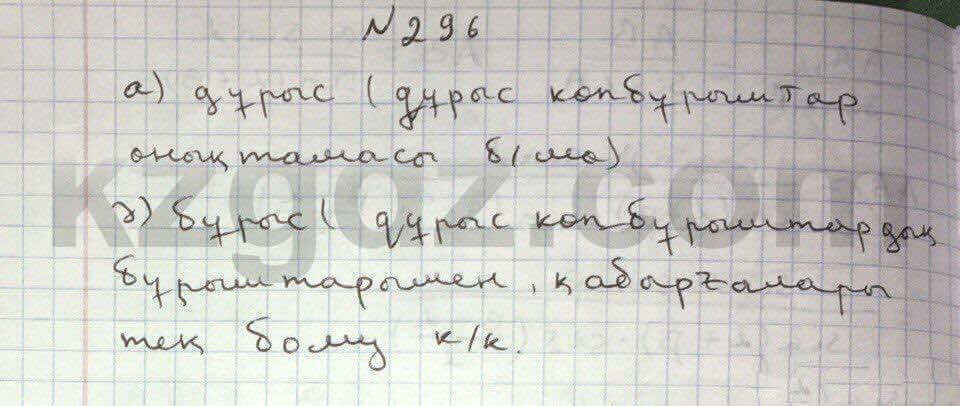 N 296
а) дұрыс (дұрыс көпбұрыштар
анықтамасы б/ша)
ә) бұрыс (дұрыс көпбұрыштардың
бұрыштармен, қабырғалары
тең болу к/к.
kzgdz.com